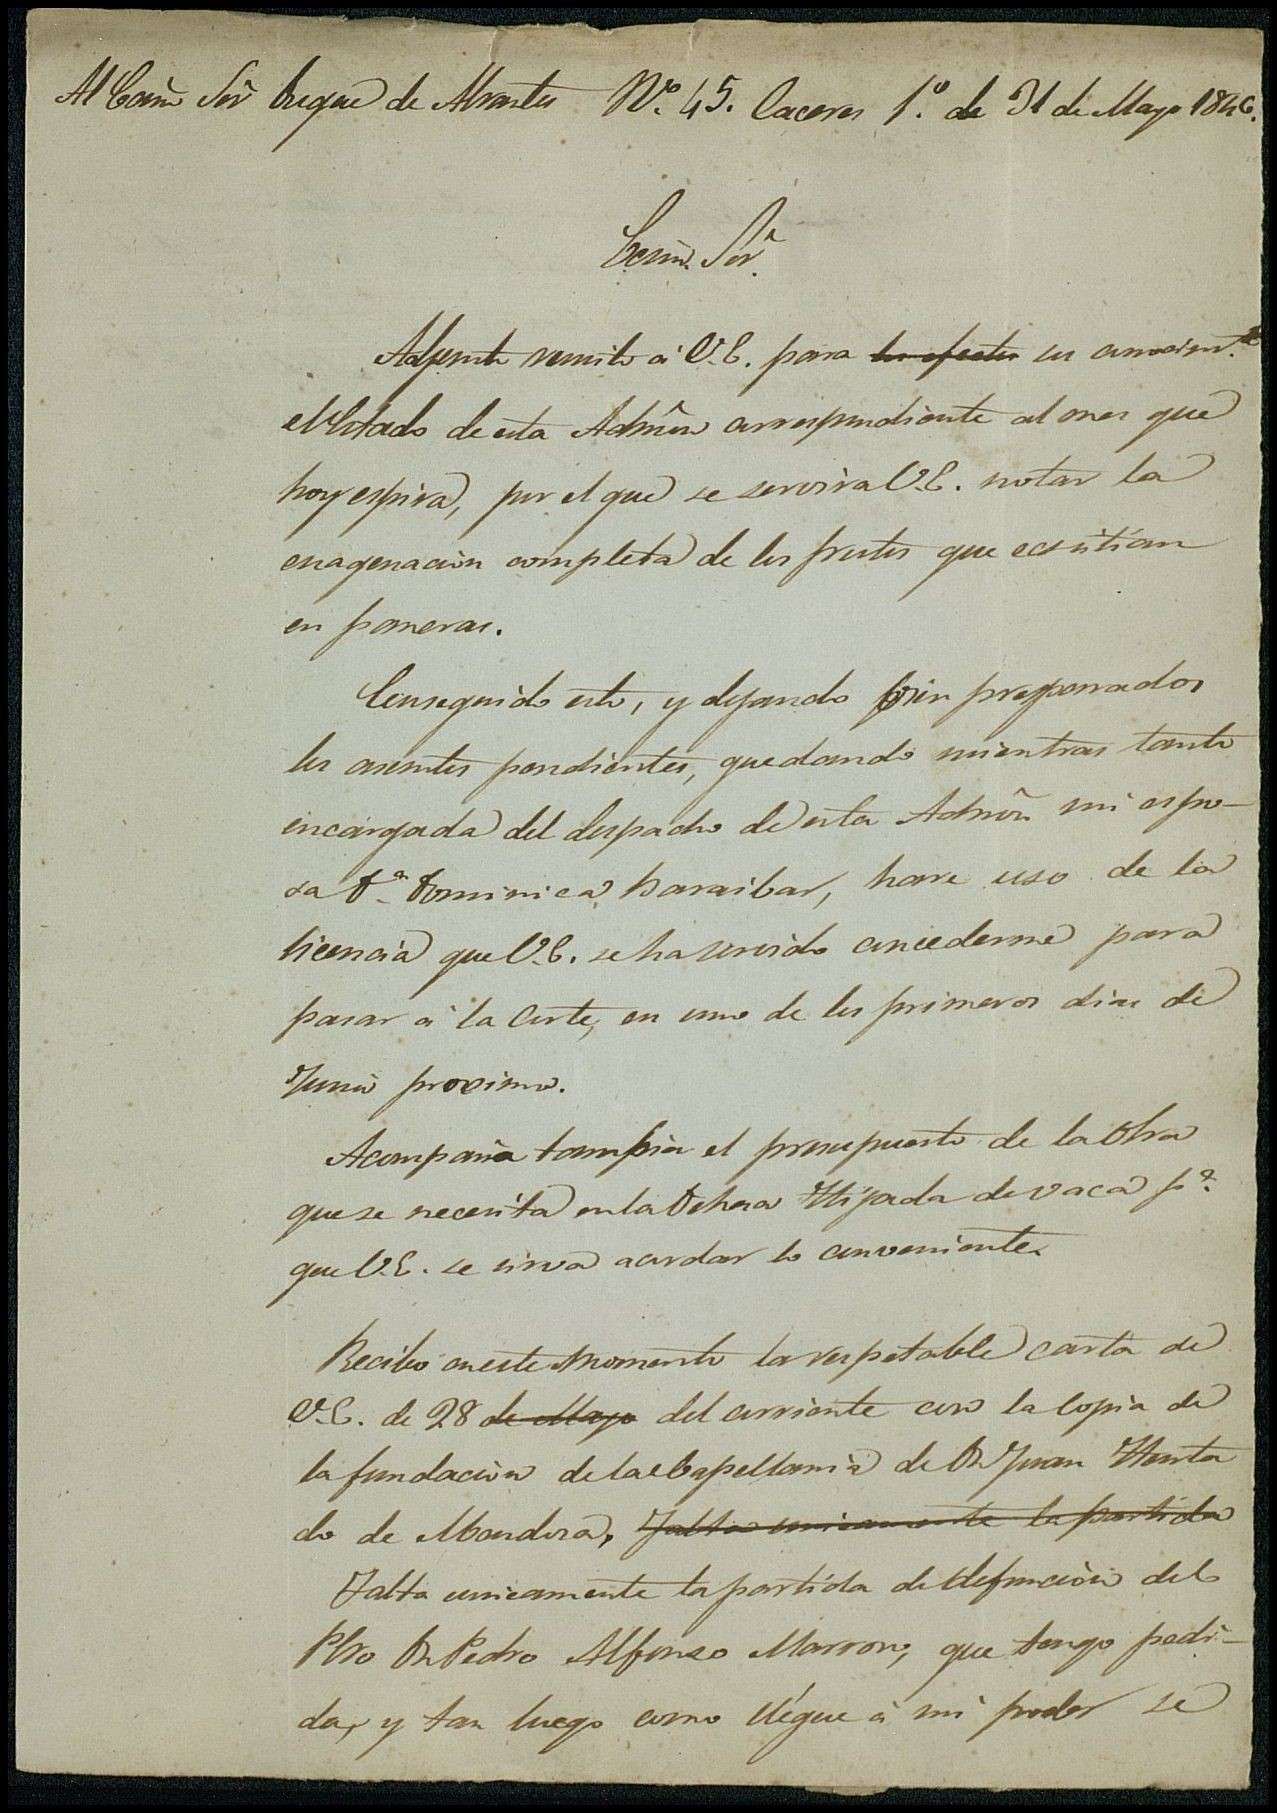 Al Ecsmo Sor Duque de Abrantes Nº 45. Caceres 1º. de 31 de Mayo 1846.
Ecsmo. Sor.
Adjunto remito á V.E. para los efectos su conocimto.
el Estado de esta Admōn correspondiente al mes que
hoy espira, por el que se servira V.E. notar la
enagenacion completa de los frutos que ecsistian
en paneras.
Conseguido esto, y dejando bien preparados
los asuntos pendientes, quedando mientras tanto
encargada del despacho de esta Admōn mi espo-
sa Dª. Dominica Baraibar, hare uso de la
licencia que V.E. se ha servido concederme para
pasar á la Corte, en uno de los primeros dias de
Junio procsimo.
Acompaña tambien el presupuesto de la Obra
que se necesita en la Dehesa Hijada de vaca pª.
que V.E. se sirva acordar lo conveniente.
Recibo en este momento la respetable carta de
V.E. de 28 de Mayo del corriente con la copia de
la fundacion de la Capellania de Dn Juan Hurta
do de Mendoza, Falta unicamente la partida
Falta unicamente la partida de defuncion del
Pbro Dn Pedro Alfonso Marron, que tengo pedi-
da, y tan luego como llégue á mi poder se